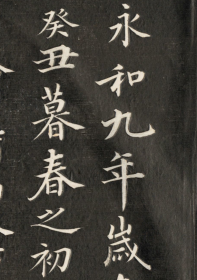 永和九年歲
癸丑暮春之初